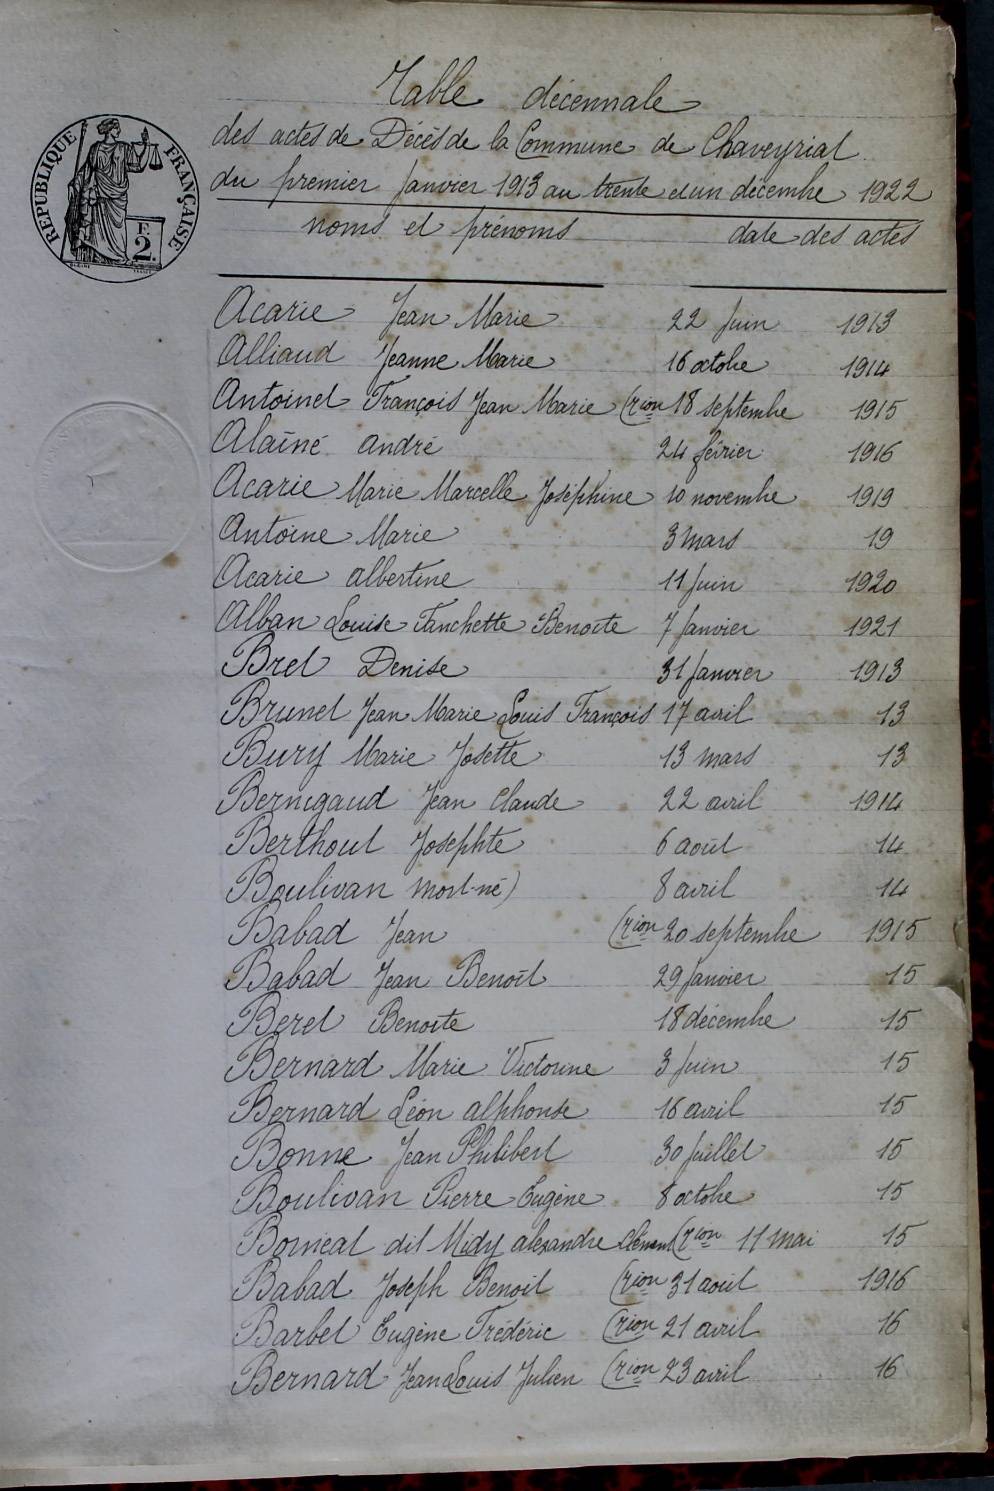 Table décennale
des actes de Décès de la Commune de Chaveyriat
du premier Janvier 1913 au trente et un décembre 1922
RÉPUBLIQUE FRANÇAISE
F.
2.
noms et prénoms date des actes
Acarie Jean Marie 22 Juin 1913
Alliaud Jeanne Marie 16 octobre 1914
Antoinet François Jean Marie (rion 18 septembre 1915
Alainé andré 24 février 1916
Acarie Marie Marcelle Joséphine 10 novembre 1919
Antoine Marie 3 mars 19
Acarie albertine 11 Juin 1920
Alban Louise Fanchette Benoite 7 Janvier 1921
Bret Denise 31 Janvier 1913
Brunet Jean Marie Louis François 17 avril 13
Bury Marie Josette 13 mars 13
Bernigaud Jean Claude 22 avril 1914
Berthout Josephte 6 août 14
Boulivan mort-né) 8 avril 14
Babad Jean (rion 20 septembre 1915
Babad Jean Benoît 29 Janvier 15
Beret Benoite 18 décembre 15
Bernard Marie Victorine 3 Juin 15
Bernard Léon alphonse 16 avril 15
Bonne Jean Philibert 30 Juillet 15
Boulivan Pierre Eugène 8 octobre 15
Borneat dit Midy alexandre Clément (rion 11 mai 15
Babad Joseph Benoit (rion 31 août 1916
Barbet Eugène Frédéric (rion 21 avril 16
Bernard Jean Louis Julien (rion 23 avril 16